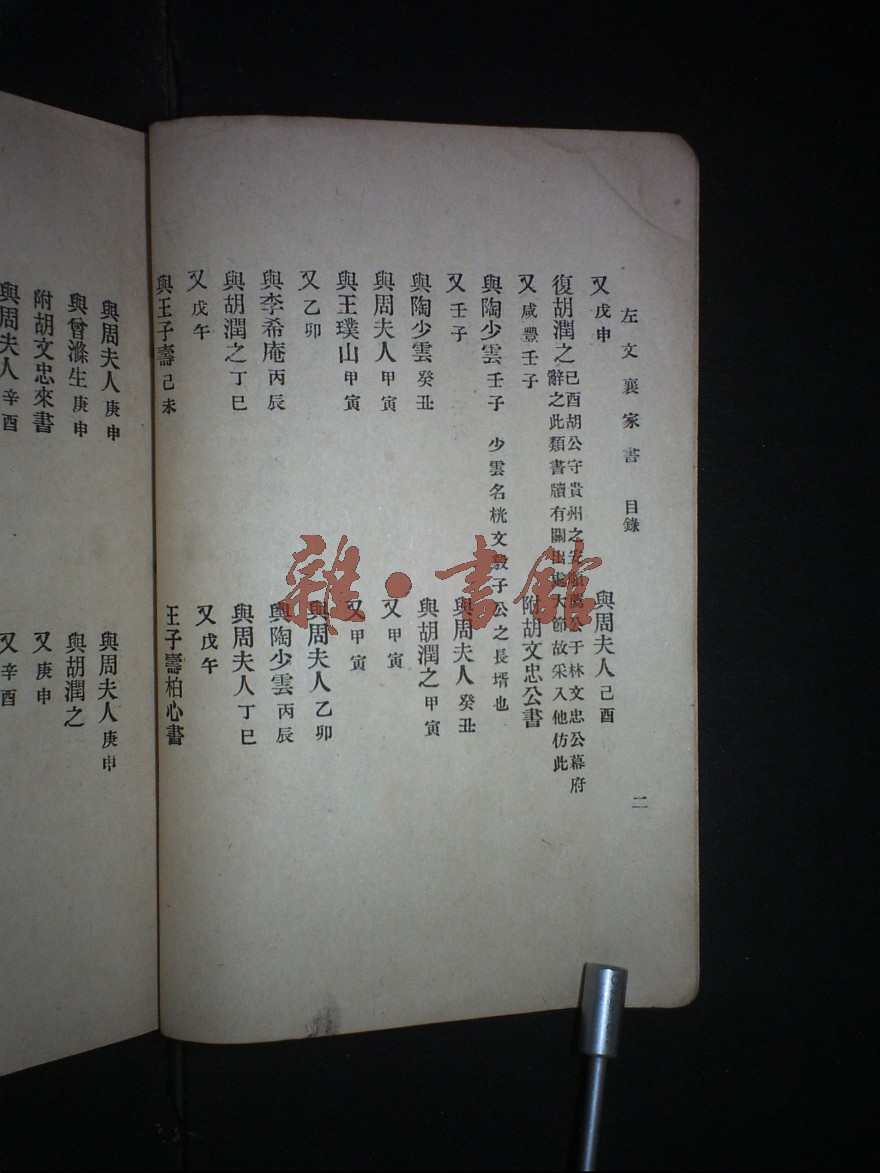 左文襄家書 目錄 二
又戊申 與周夫人己酉
復胡潤之 己酉胡公守貴州之安順薦公于林文忠公幕府
辭之此類書牘有關出處大節故采入他仿此
又咸豐壬子 附胡文忠公書
與陶少雲壬子 少雲名桄文毅子公之長壻也
又壬子 與周夫人癸丑
與陶少雲癸丑 與胡潤之甲寅
與周夫人甲寅 又甲寅
與王璞山甲寅 又甲寅
又乙卯 與周夫人乙卯
與李希庵丙辰 與陶少雲丙辰
與胡潤之丁巳 與周夫人丁巳
又戊午 又戊午
與王子壽己未 王子壽柏心書
與周夫人庚申 與周夫人庚申
與曾滌生庚申 與胡潤之
附胡文忠來書 又庚申
與周夫人辛酉 又辛酉
雜·書館